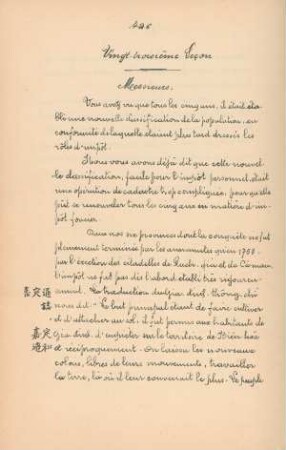 426
Vingt-troisième Leçon
Messieurs.
Vous avez vu que tous les cinq ans, il était éta-
bli une nouvelle classification de la population, en
conformité de laquelle étaient plus tard dressés les
rôles d'impôt.
Nous vous avons déjà dit que cette nouvel-
le classification, faite pour l'impôt personnel était
une opération de cadastre trop compliquée, pour qu'elle
pût se renouveler tous les cinq ans en matière d'im-
pôt foncier.
Dans nos six provinces dont la conquête ne fut
pleinement terminée par les annamites qu'en 1758
par l'érection des citadelles de
l'impôt ne fut pas dès l'abord établi très rigoureu-
sement. La traduction du gia dinh thông chí
nous dit - Le but principal étant de faire cultiver
et d'attacher au sol, il fut permis aux habitants de
Gia dinh d'empiéter sur le territoire de Biên hòa
et réciproquement. On laissa les nouveaux
colons, libres de leurs mouvements, travailler
la terre, là où il leur convenait le plus. Le peuple
嘉定通
誌
嘉定
通和